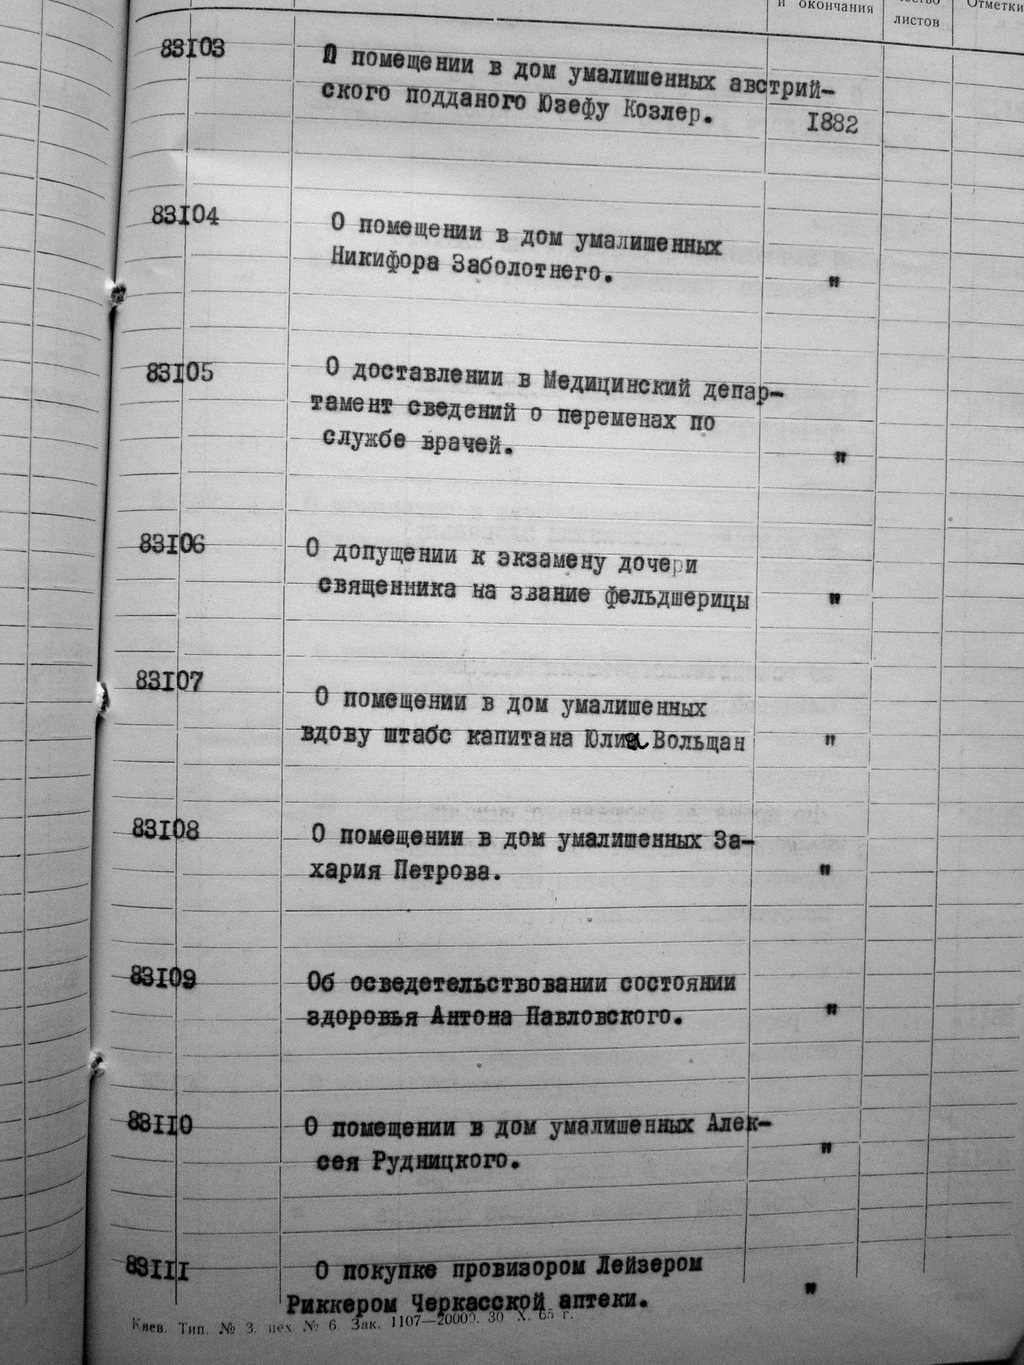 и окончания
чество
листов
Отметки
83I03
О помещении в дом умалишенных австрий-
ского подданого Юзефу Козлер.
I882
83I04
О помещении в дом умалишенных
Никифора Заболотнего.
"
83I05
О доставлении в Медицинский депар-
тамент сведений о переменах по
службе врачей.
"
83I06
О допущении к экзамену дочери
священника на звание фельдшерицы
"
83I07
О помещении в дом умалишенных
вдову штабс капитана Юлия Вольщан
"
83I08
О помещении в дом умалишенных За-
хария Петрова.
"
83I09
Об осведетельствовании состоянии
здоровья Антона Павловского.
"
83II0
О помещении в дом умалишенных Алек-
сея Рудницкого.
"
83III
О покупке провизором Лейзером
Риккером Черкасской аптеки.
"
Киев. Тип. № 3. цех № 6. Зак. 1107—20000. 30 X. 65 г.